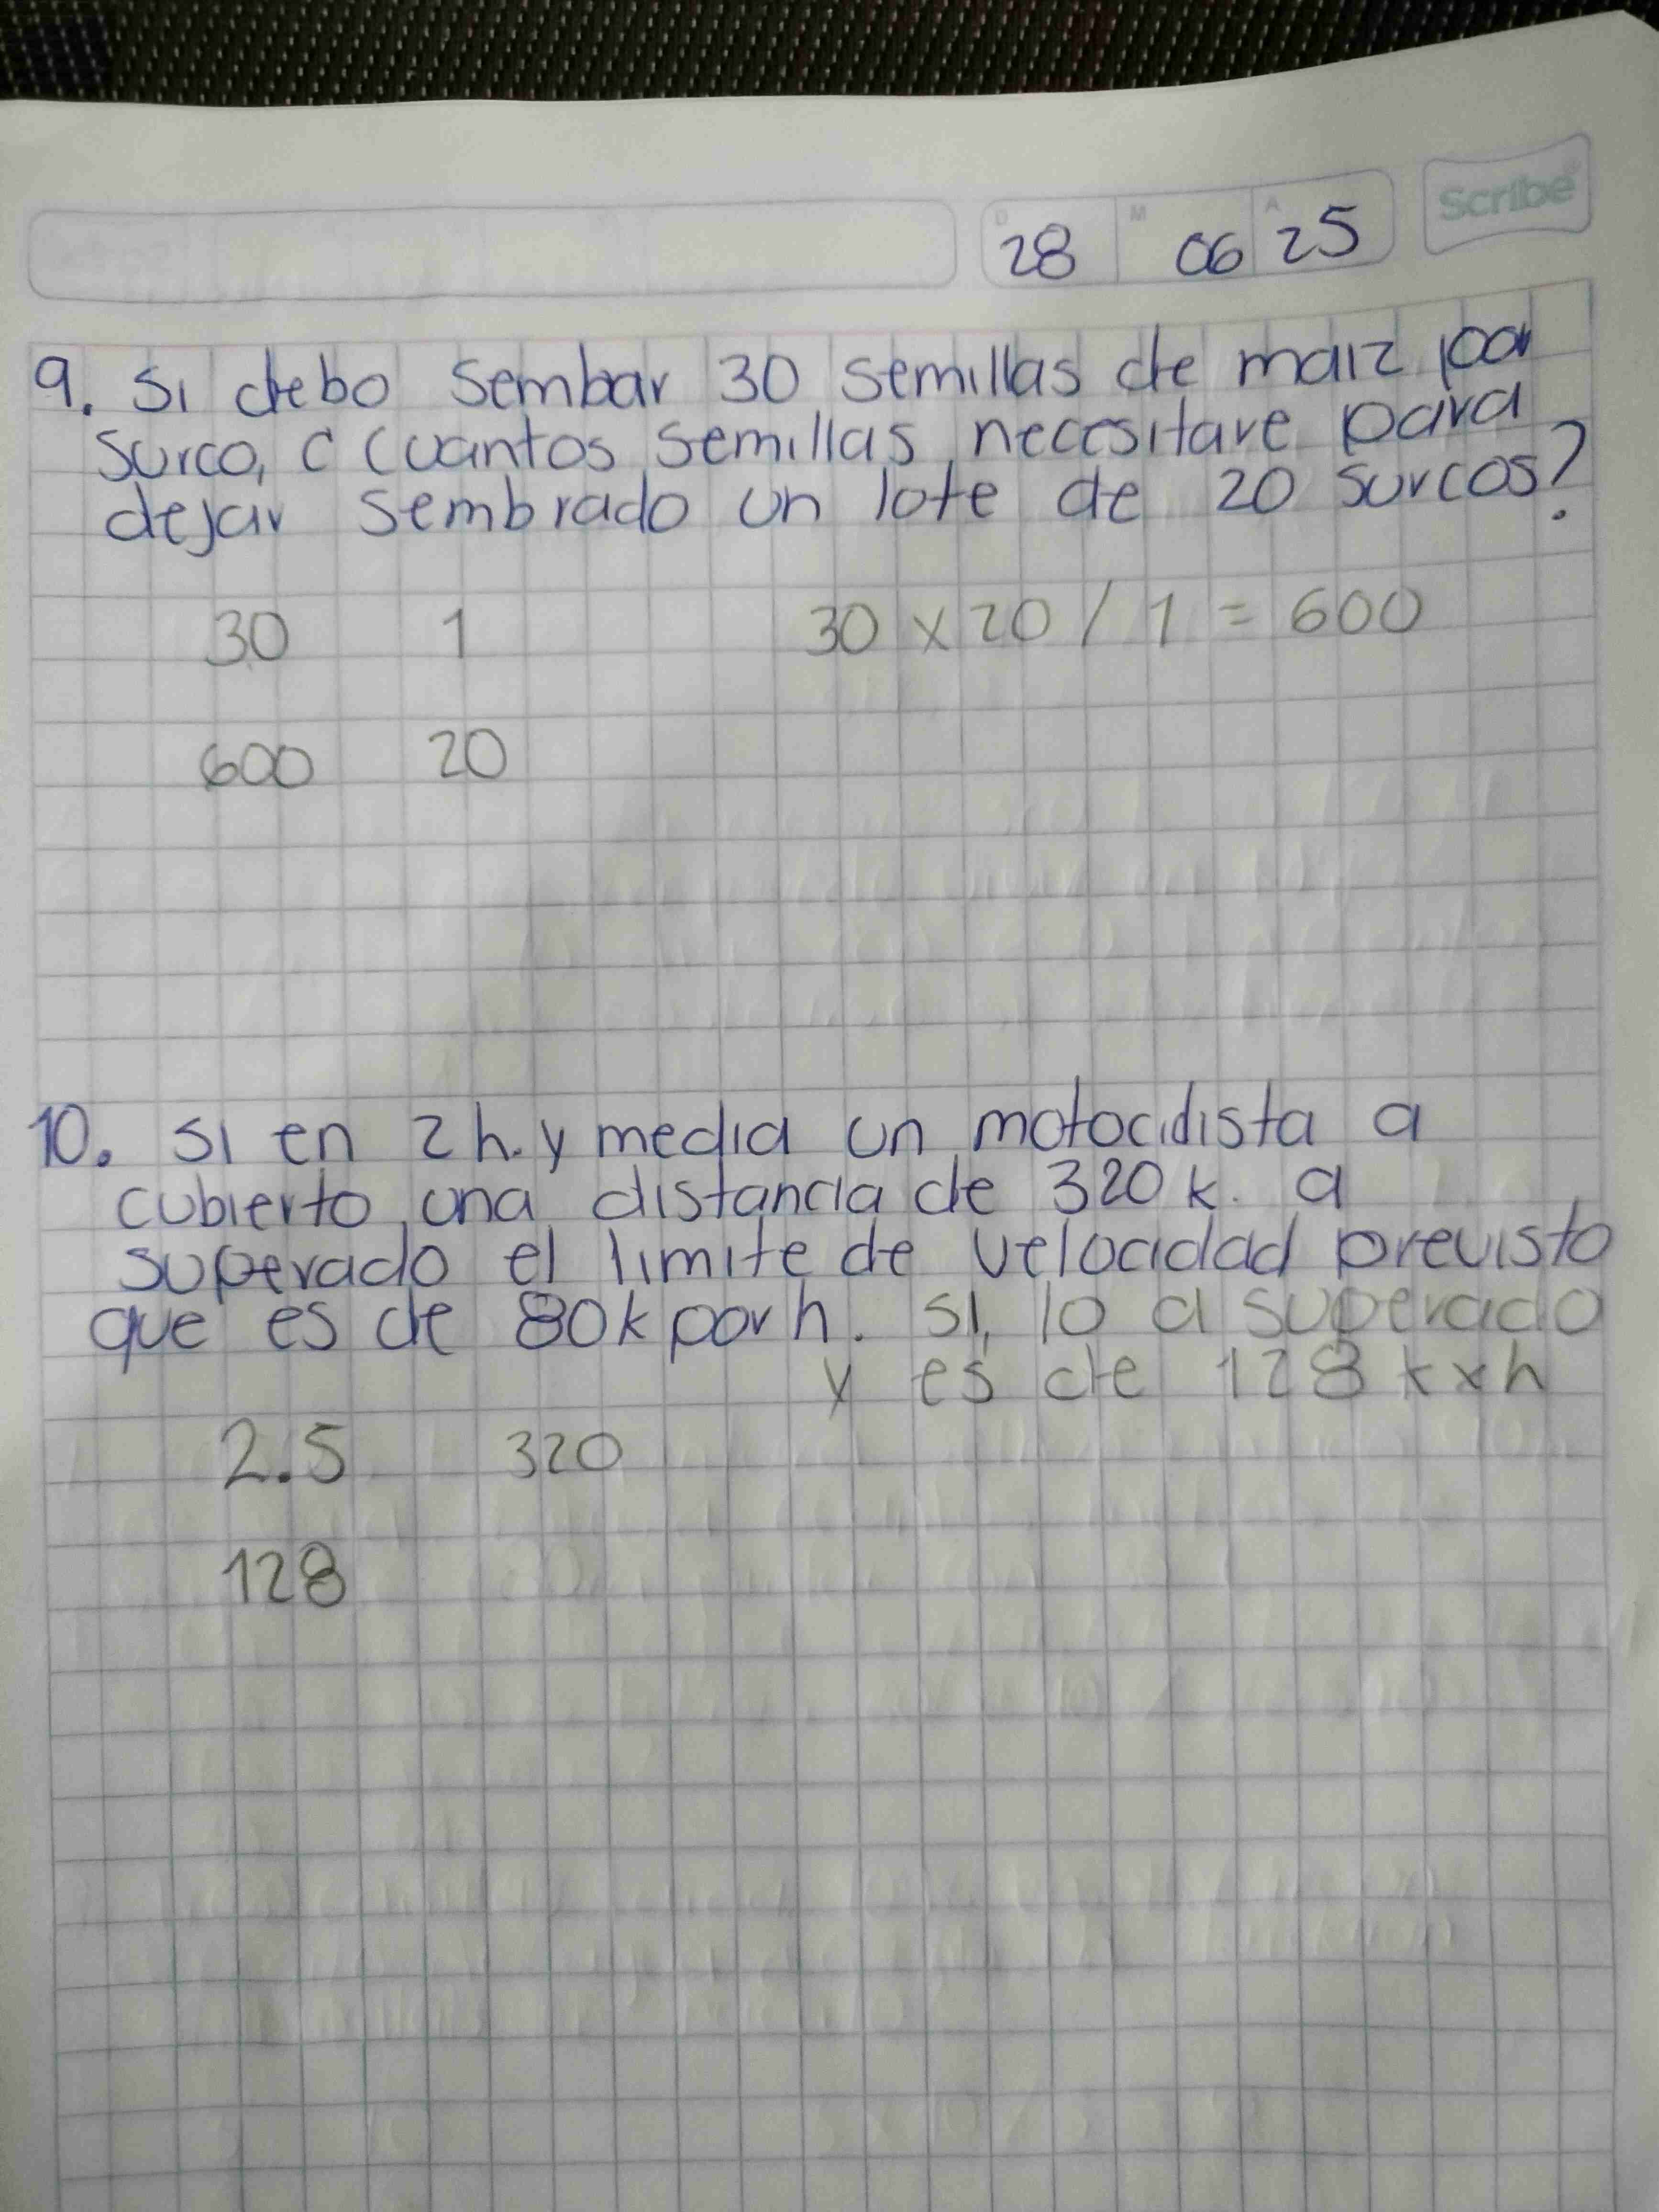 D M A
28 06 25
Scribe
9. Si debo Sembar 30 semillas de maiz por
surco, ¿ Cuantos semillas necesitare para
dejar sembrado un lote de 20 surcos?
30 1 30 x 20 / 1 = 600
600 20
10. Si en 2 h. y media un motociclista a
cubierto una distancia de 320 k. a
superado el limite de velocidad previsto
que es de 80 k por h. Si, lo a superado
y es de 128 k x h
2.5 320
128